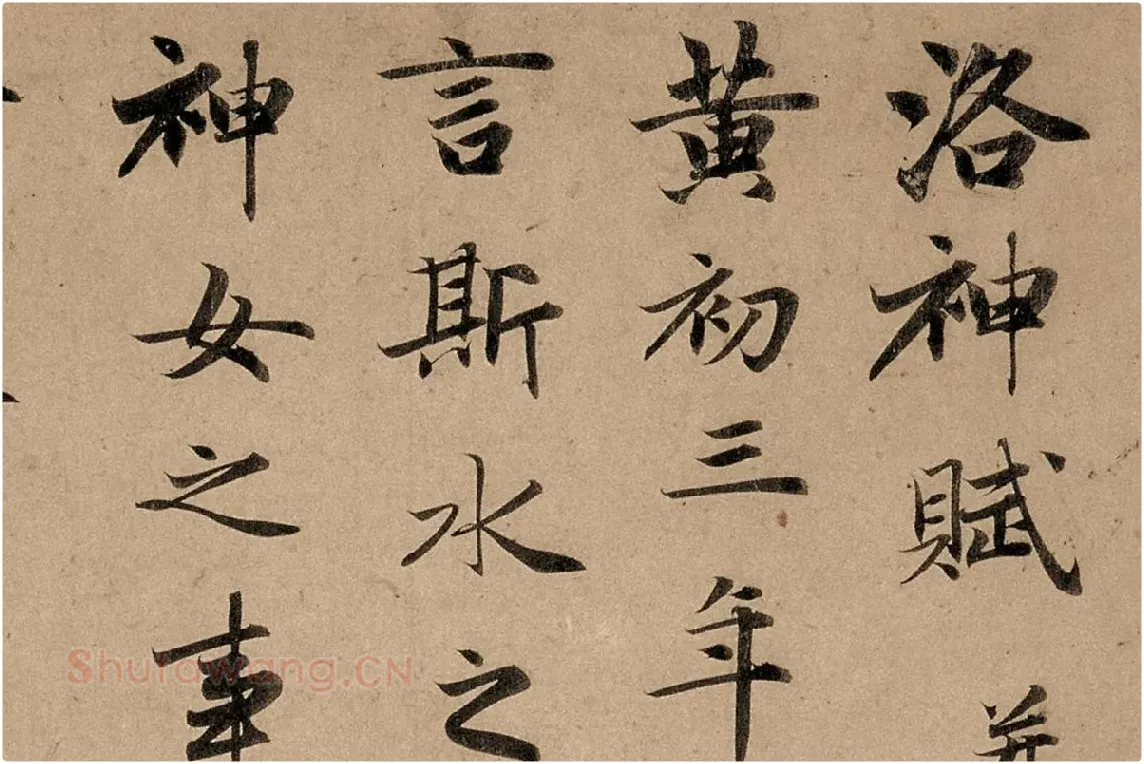 洛神賦并
黄初三年
言斯水之
神女之事
Shufawang.CN